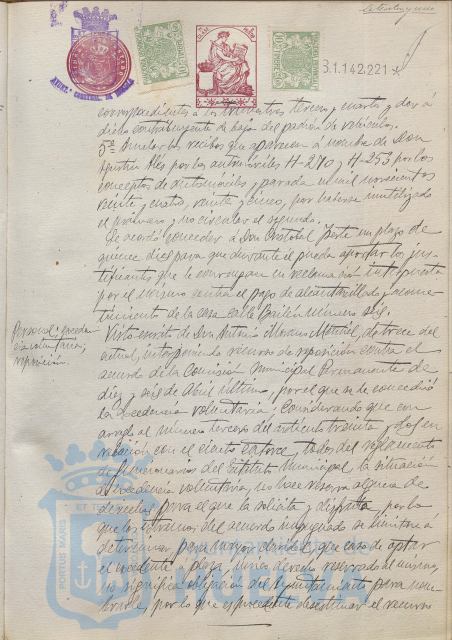 B1.142.221 *
correspondiente a los trimestres tercero y cuarto y dar á
dicho contribuyente de baja del padrón de vehículos.
5º Anular los recibos que aparecen á nombre de Don
Agustín Alés por los automóviles H-270 y H-253 por los
conceptos de automóviles y parada mil novecientos
veinte y cuatro, veinte y cinco, por haberse inutilizado
el primero y no circular el segundo.
Se acordó conceder á Don Cristobal un plazo de
quince dias para que durante él pueda aportar los jus-
tificantes que le convengan en reclamación interpuesta
por el mismo contra el pago de alcantarillado y acome-
timiento de la casa calle Bailén número seis.
Personal; exceden-
cia voluntaria;
reposición.
Visto escrito de Don Antonio Moreno, de trece del
actual, interponiendo recurso de reposición contra el
acuerdo de la Comisión Municipal Permanente de
diez y seis de Abril último, por el que se le concedió
la excedencia voluntaria; Considerando que con
arreglo al número tercero del artículo treinta y dos en
relación con el ciento catorce, del reglamento
de funcionarios del Estatuto Municipal la situación
de excedencia voluntaria, no hace reserva alguna de
derechos para el que la solicita y disfruta, por lo
que los términos del acuerdo impugnado se limitan á
determinar, para mayor claridad, que caso de optar
el excedente a plaza, derecho reservado al mismo,
no significa obligación del Ayuntamiento para nom-
brarle, por lo que es procedente desestimar el recurso
PORTUS MARIS
HUELVA